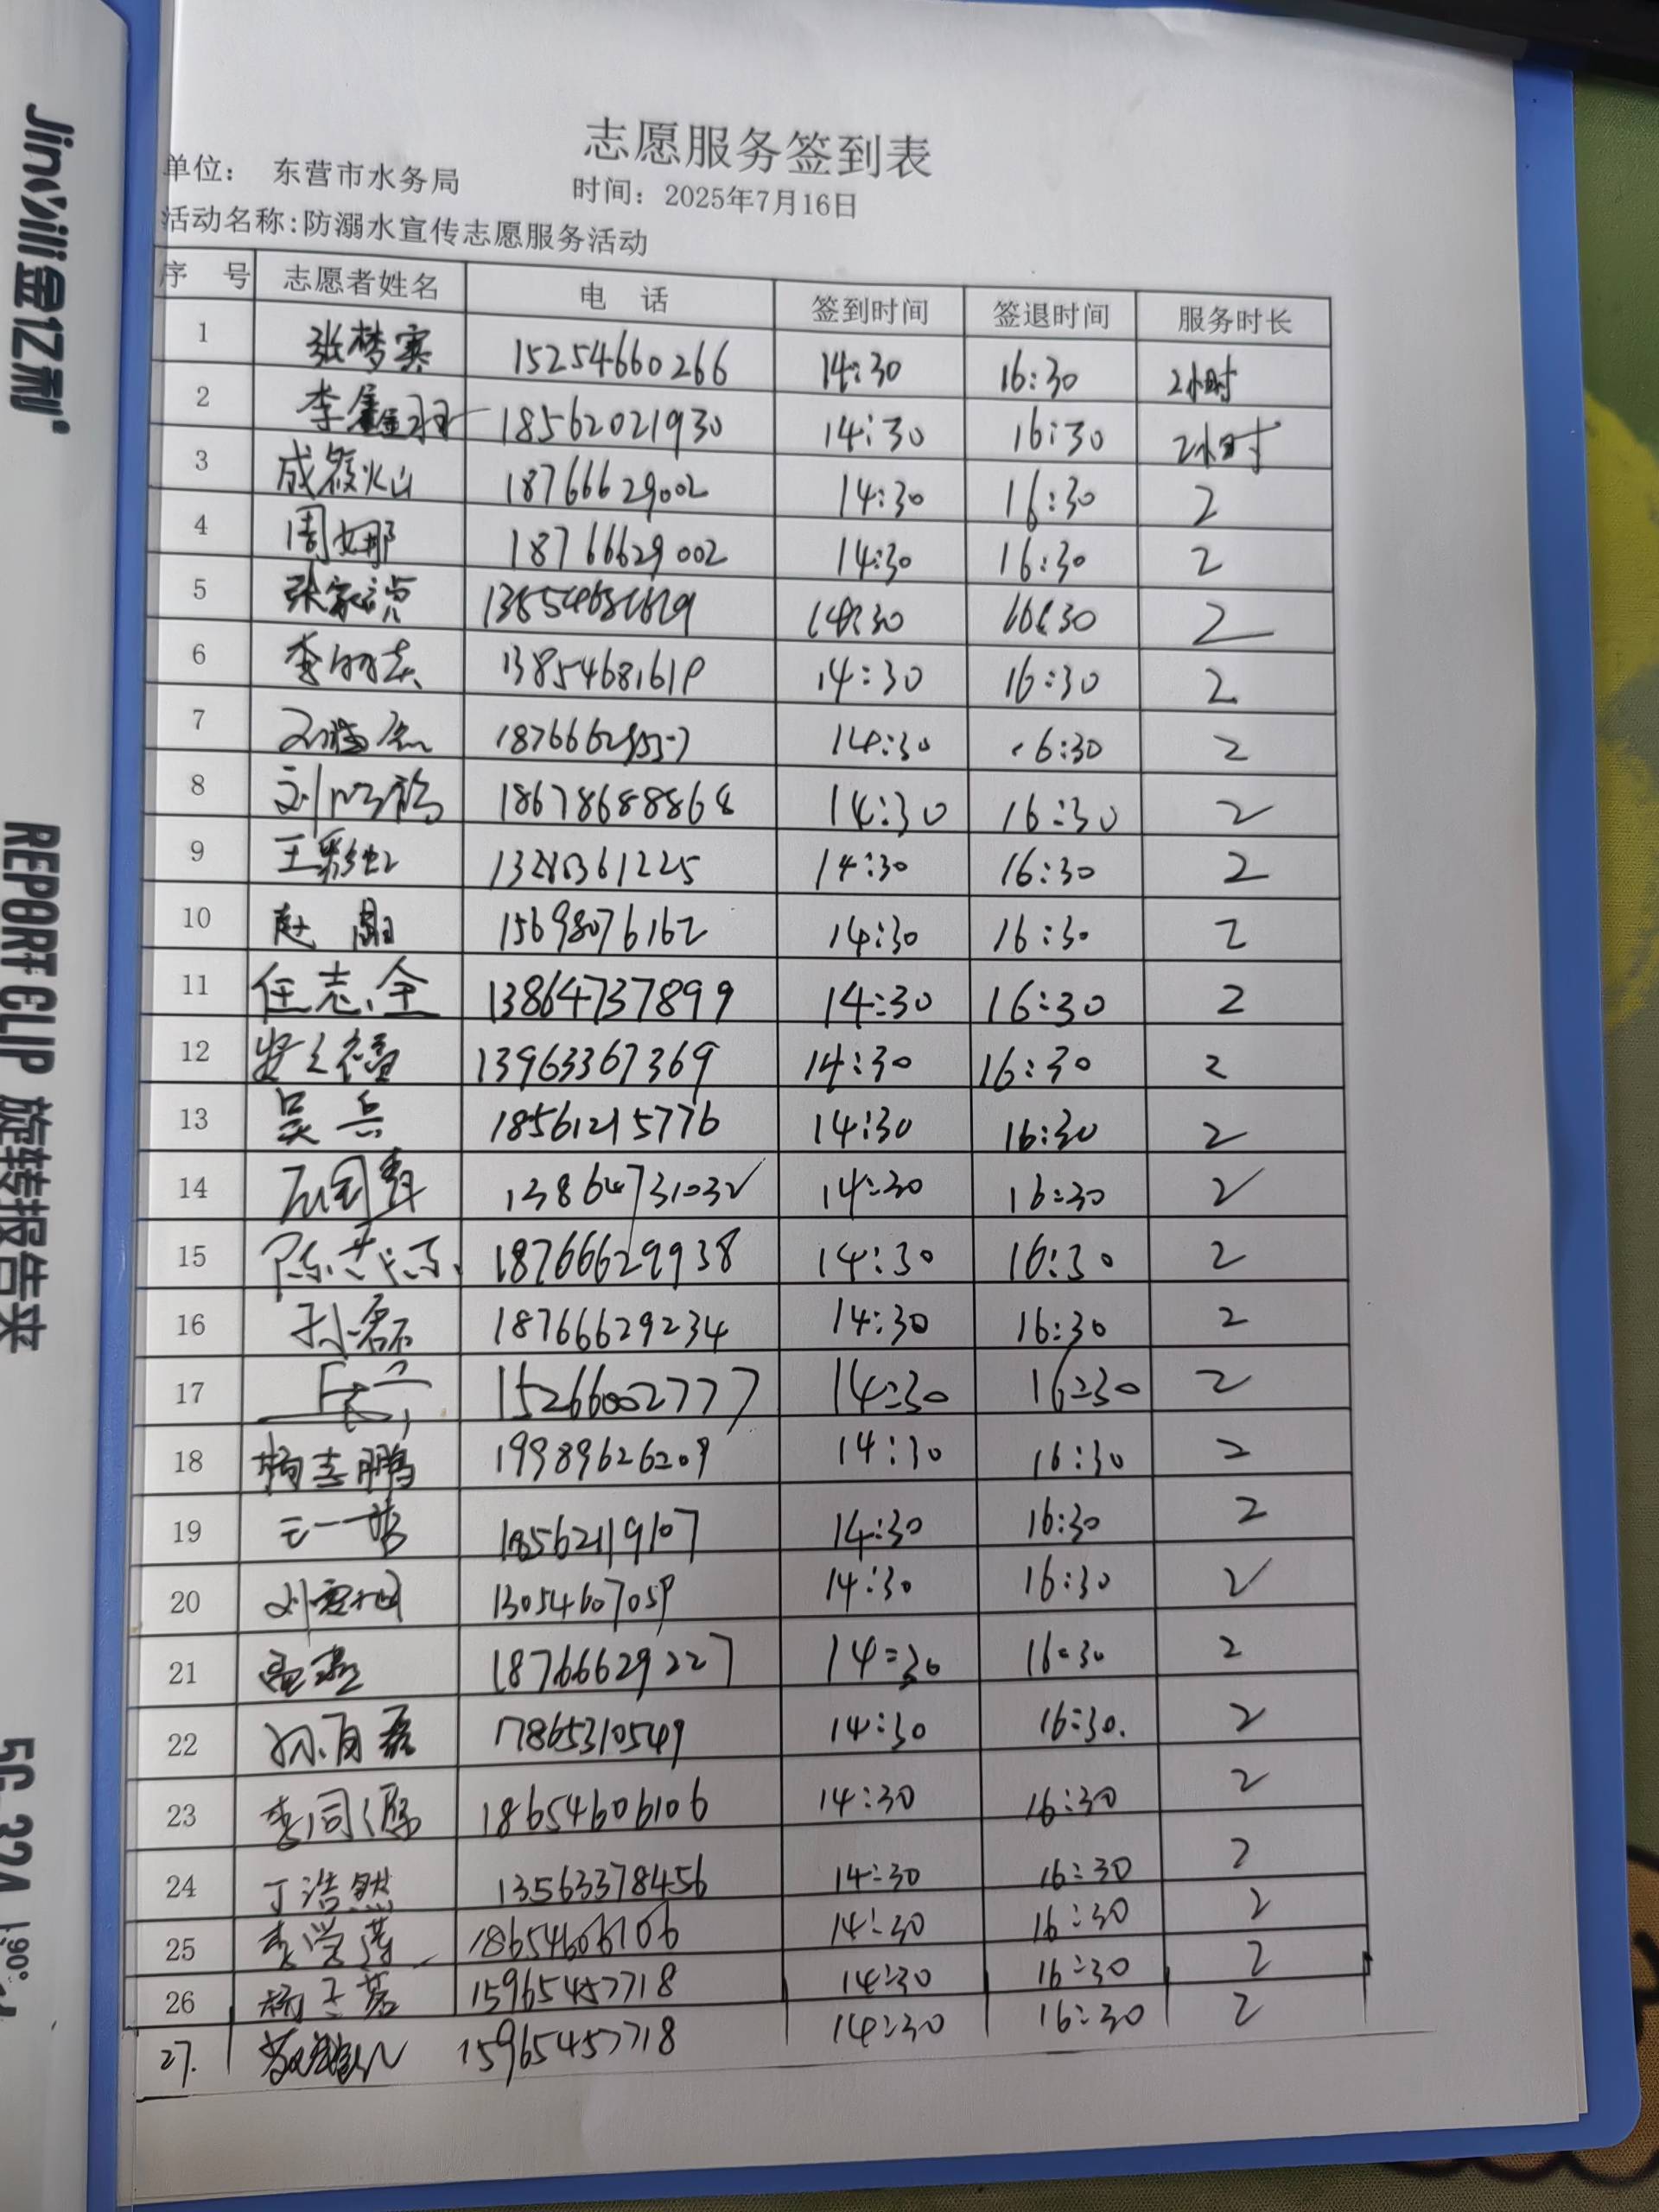 志愿服务签到表
单位： 东营市水务局 时间：2025年7月16日
活动名称:防溺水宣传志愿服务活动
序 号 志愿者姓名 电 话 签到时间 签退时间 服务时长
1 张梦寒 15254660266 14:30 16:30 2小时
2 李鑫羽 18562021930 14:30 16:30 2小时
3 成筱灿 18766629002 14:30 16:30 2
4 周娜 18766629002 14:30 16:30 2
5 张家祯 14:30 16:30 2
6 李 13854681619 14:30 16:30 2
7 14:30 16:30 2
8 刘 18678688868 14:30 16:30 2
9 王彩虹 14:30 16:30 2
10 赵 15698076162 14:30 16:30 2
11 任志全 13864737899 14:30 16:30 2
12 13963367369 14:30 16:30 2
13 吴兵 18561215776 14:30 16:30 2
14 13864731032 14:30 16:30 2
15 陈 18766629938 14:30 16:30 2
16 孙磊 18766629234 14:30 16:30 2
17 15266002777 14:30 16:30 2
18 杨志鹏 19989626209 14:30 16:30 2
19 18562119107 14:30 16:30 2
20 刘 13054607059 14:30 16:30 2
21 18766629227 14:30 16:30 2
22 17865310549 14:30 16:30. 2
23 李同源 18654606106 14:30 16:30 2
24 丁浩然 13563378456 14:30 16:30 2
25 李学 18654606106 14:30 16:30 2
26 杨 15965457718 14:30 16:30 2
27. 15965457718 14:30 16:30 2
Jinyili金亿利
REPORT CLIP 旋转报告夹